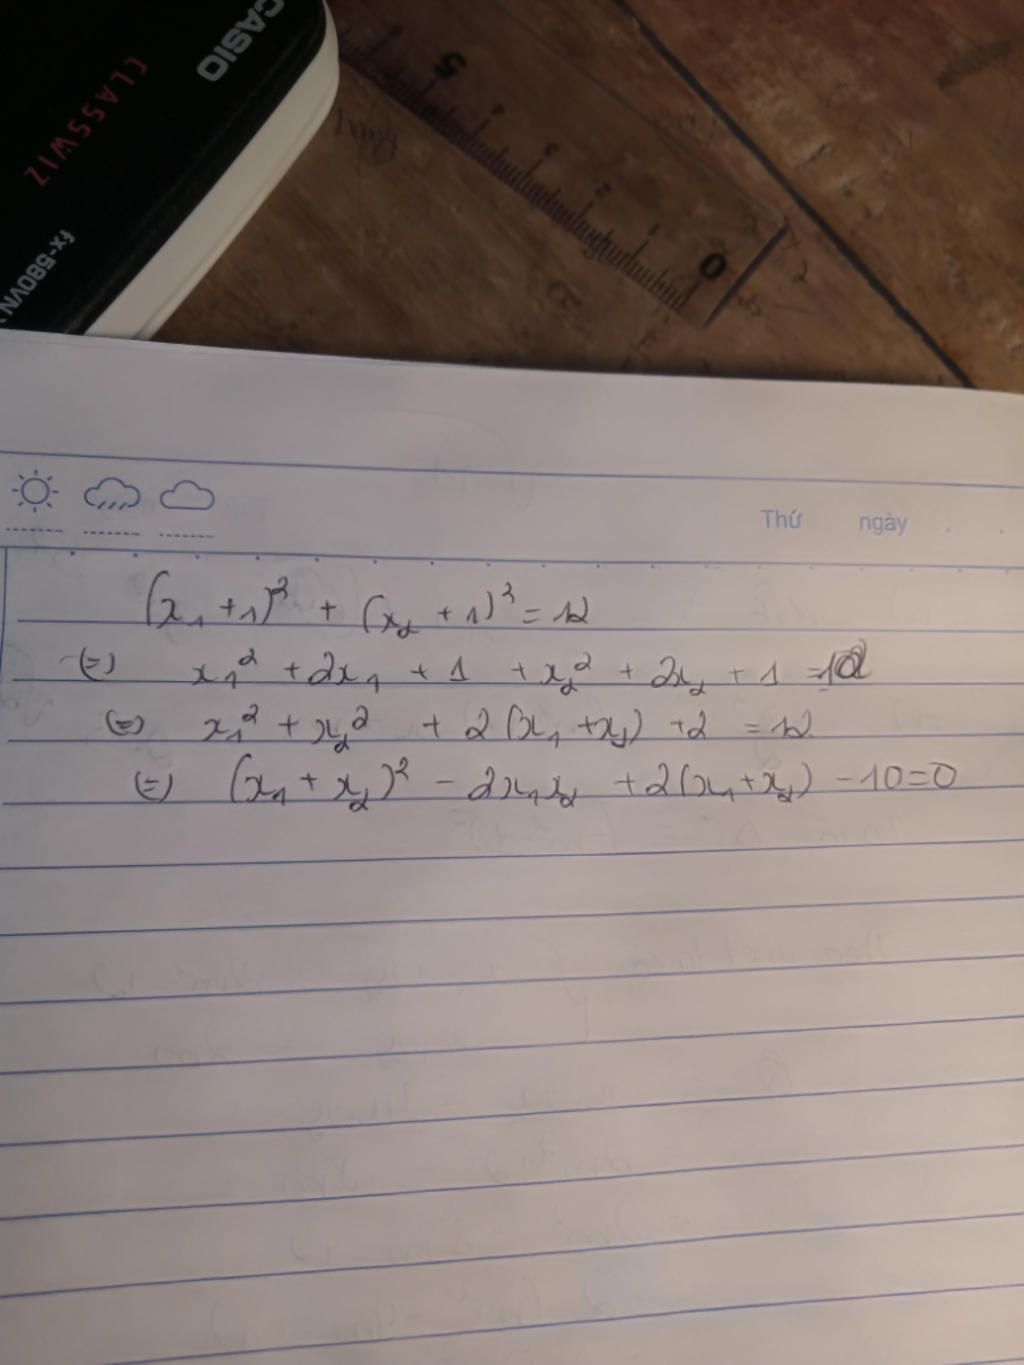 CASIO
CLASSWIZ
fx-580VN
5
4
3
2
1
0
Thứ ngày
(x₁ + 1)² + (x₂ + 1)² = 12
(=) x₁² + 2x₁ + 1 + x₂² + 2x₂ + 1 = 12
(=) x₁² + x₂² + 2(x₁ + x₂) + 2 = 12
(=) (x₁ + x₂)² - 2x₁x₂ + 2(x₁ + x₂) - 10 = 0